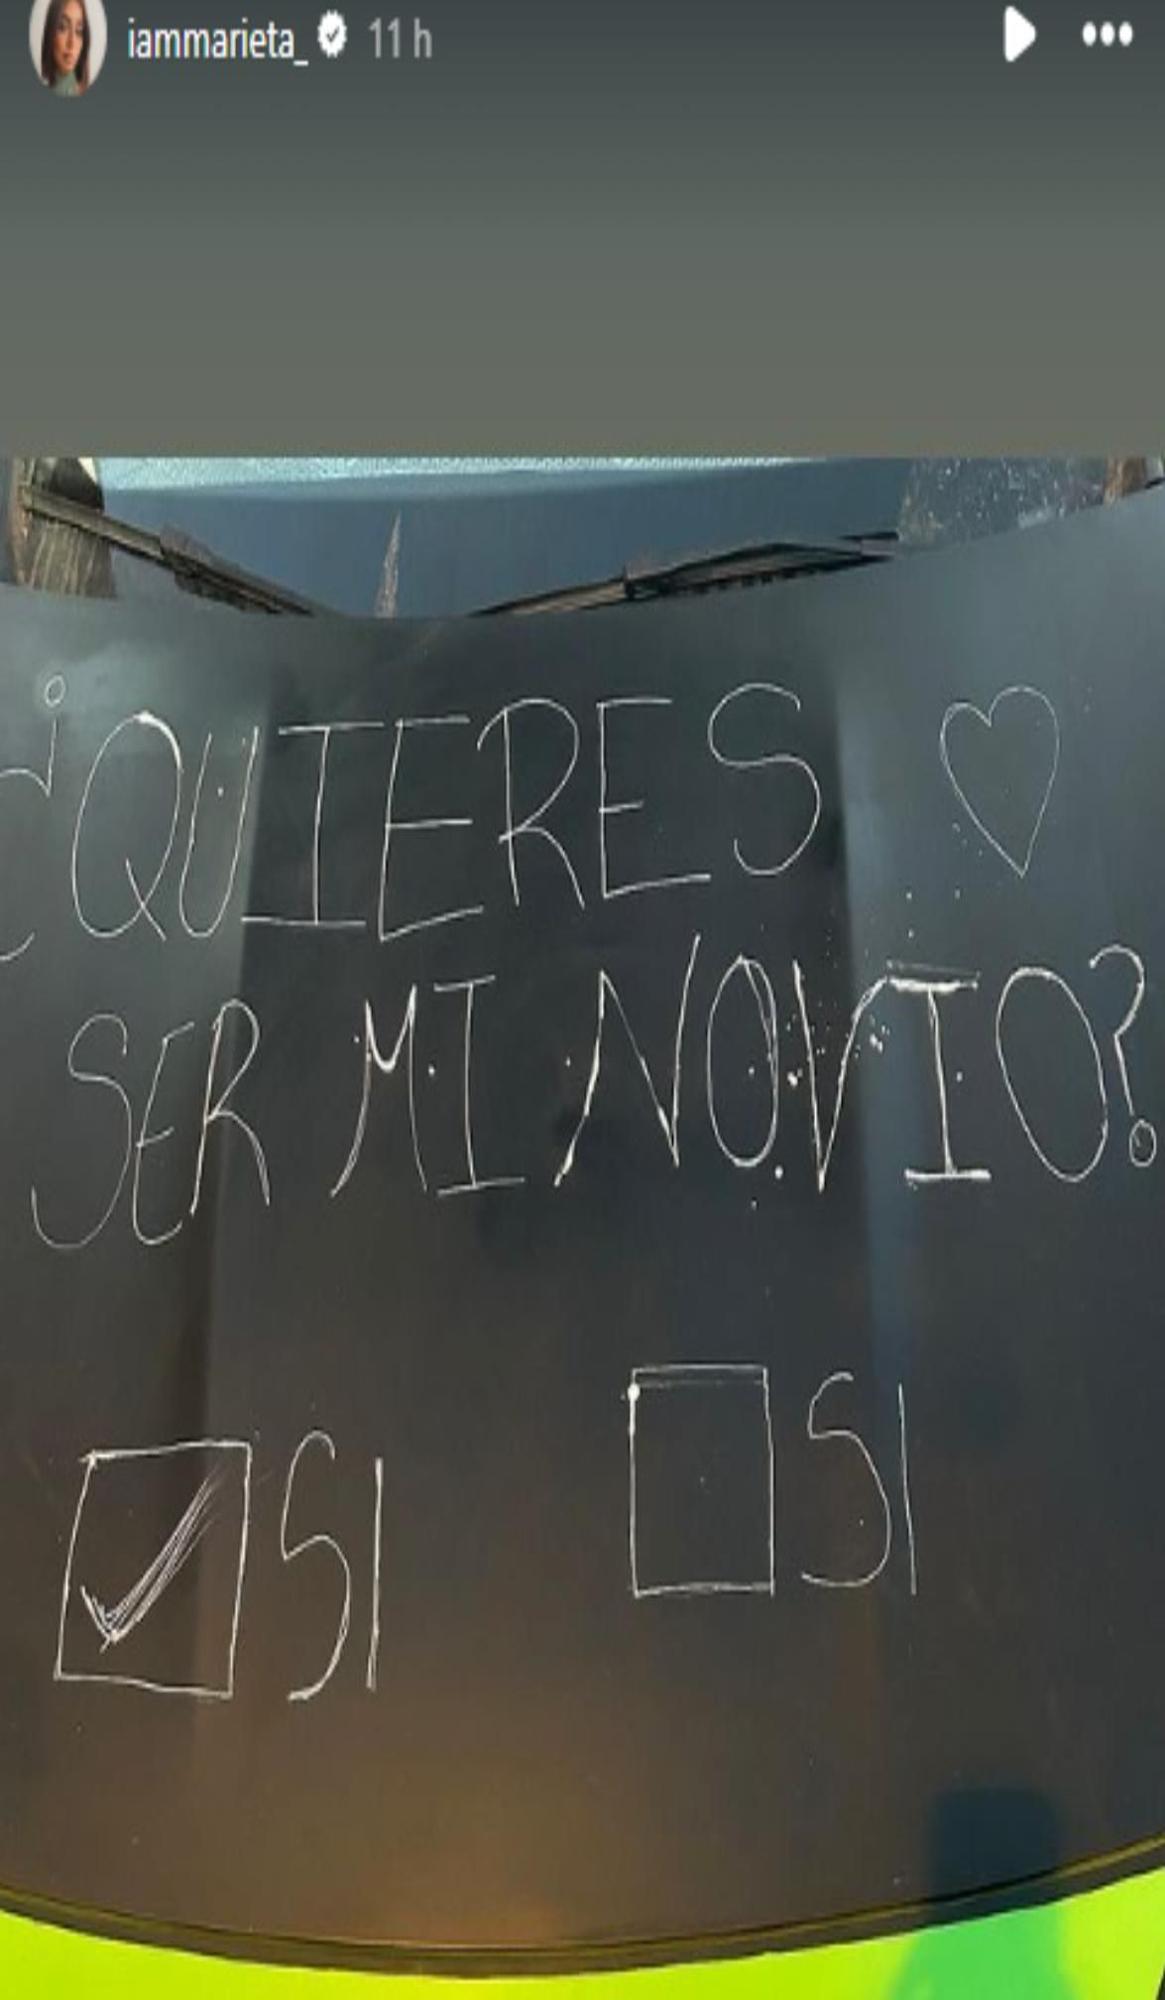 iammarieta_ 11 h
¿QUIERES
SER MI NOVIO?
SI SI